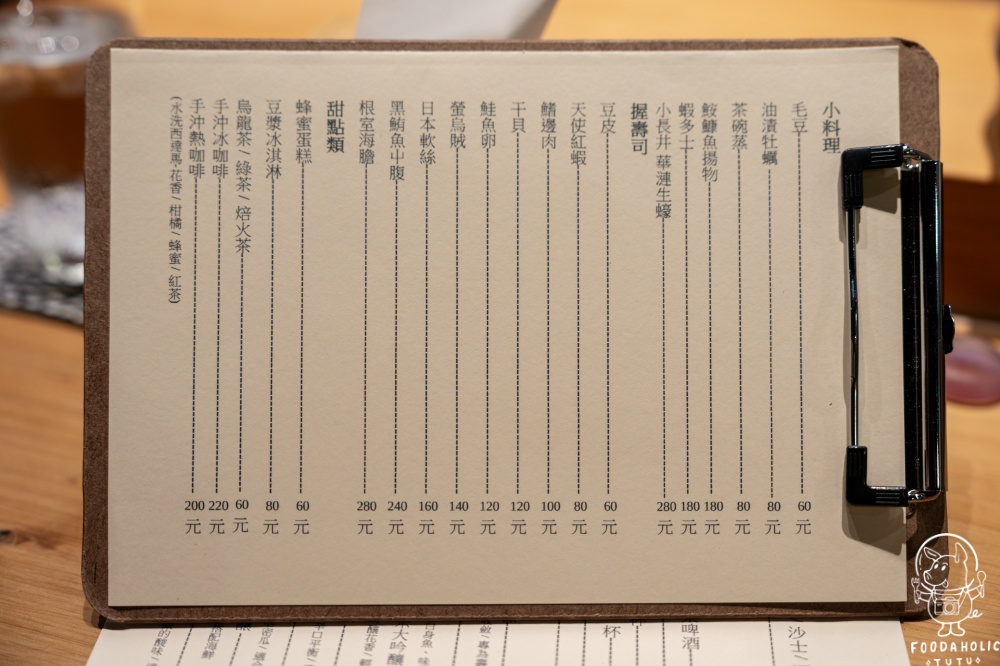 小料理
毛豆 60元
油漬牡蠣 80元
茶碗蒸 80元
鮟鱇魚揚物 180元
蝦多士 180元
小長井 華漣生蠔 280元
握壽司
豆皮 60元
天使紅蝦 80元
鰭邊肉 100元
干貝 120元
鮭魚卵 120元
螢烏賊 140元
日本軟絲 160元
黑鮪魚中腹 240元
根室海膽 280元
甜點類
蜂蜜蛋糕 60元
豆漿冰淇淋 80元
烏龍茶 / 綠茶 / 焙火茶 60元
手沖冰咖啡 220元
手沖熱咖啡 200元
(水洗西達馬/花香/柑橘/蜂蜜/紅茶)
沙士 /
啤酒
杯
大吟釀
FOODAHOLIC
TUTU